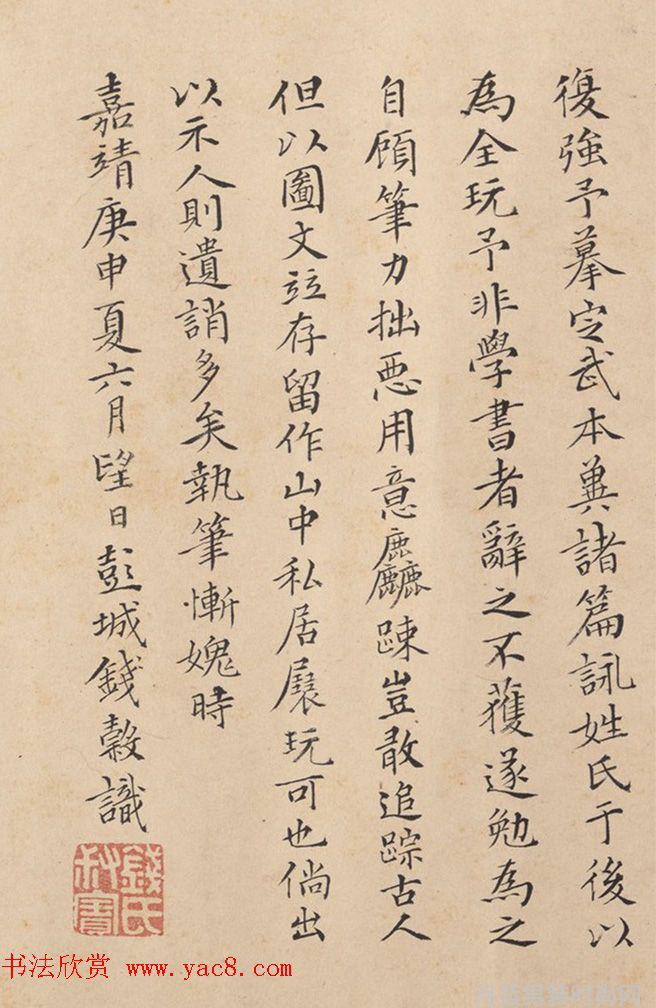 復強予摹定武本兾諸篇詠姓氏于後以
為全玩予非學書者辭之不獲遂勉為之
自顧筆力拙惡用意麤踈豈敢追踪古人
但以圖文竝存留作山中私居展玩可也倘出
以示人則遺誚多矣執筆慚媿時
嘉靖庚申夏六月望日彭城錢榖識
錢氏
书法欣赏 www.yac8.com